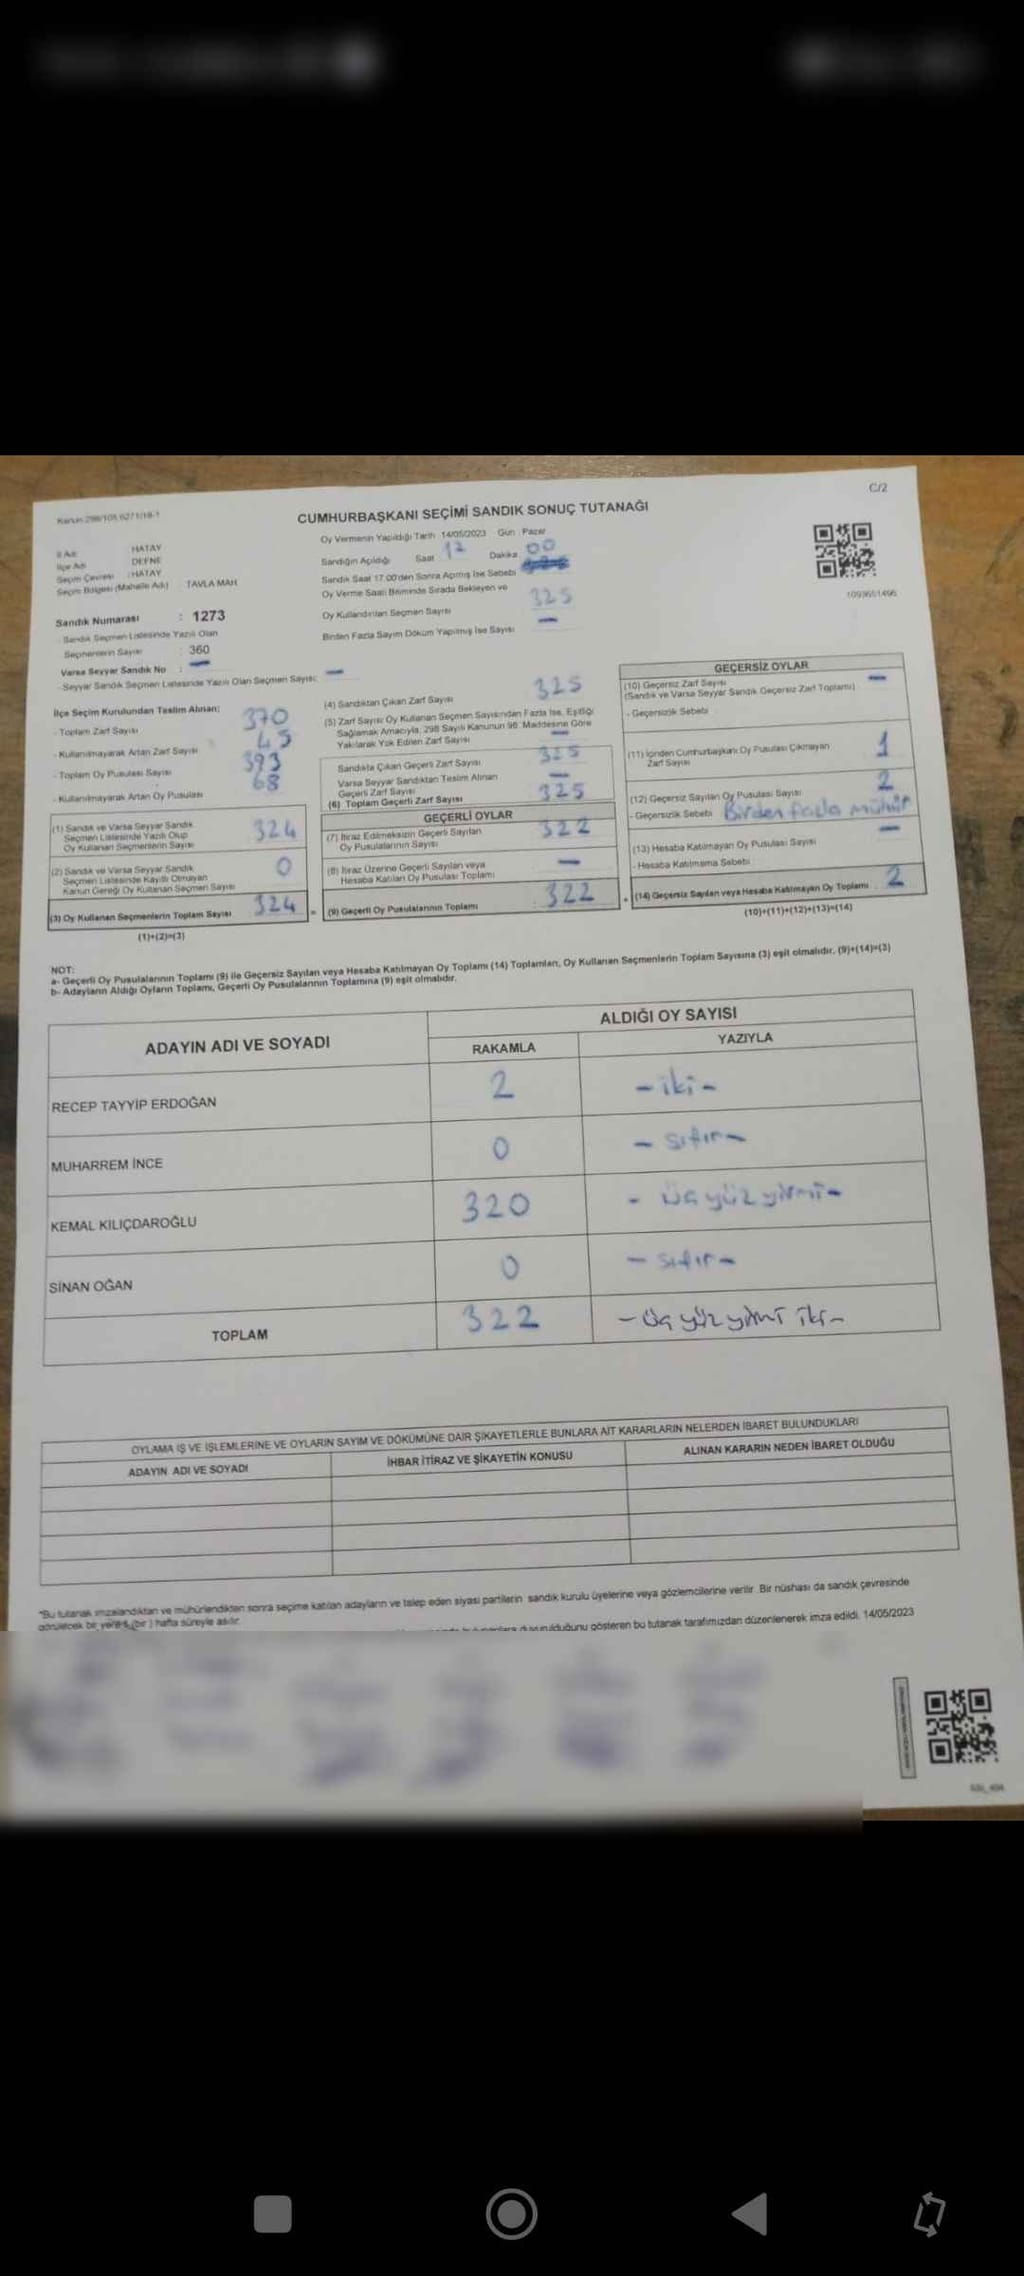 C/2
Kanun 298/105 6271/18-1
CUMHURBAŞKANI SEÇİMİ SANDIK SONUÇ TUTANAĞI
İl Adı HATAY
İlçe Adı DEFNE
Seçim Çevresi : HATAY
Seçim Bölgesi (Mahalle Adı) TAVLA MAH
Sandık Numarası : 1273
- Sandık Seçmen Listesinde Yazılı Olan
Seçmenlerin Sayısı : 360
Varsa Seyyar Sandık No : -
- Seyyar Sandık Seçmen Listesinde Yazılı Olan Seçmen Sayısı: -
Oy Vermenin Yapıldığı Tarih 14/05/2023 Gün : Pazar
Sandığın Açıldığı Saat Dakika 00
Sandık Saat 17.00'den Sonra Açılmış İse Sebebi
Oy Verme Saati Bitiminde Sırada Bekleyen ve
Oy Kullandırılan Seçmen Sayısı 325
Birden Fazla Sayım Döküm Yapılmış İse Sayısı -
1093651496
İlçe Seçim Kurulundan Teslim Alınan;
- Toplam Zarf Sayısı 370
- Kullanılmayarak Artan Zarf Sayısı 45
- Toplam Oy Pusulası Sayısı 393
- Kullanılmayarak Artan Oy Pusulası 68
(1) Sandık ve Varsa Seyyar Sandık
Seçmen Listesinde Yazılı Olup
Oy Kullanan Seçmenlerin Sayısı 324
(2) Sandık ve Varsa Seyyar Sandık
Seçmen Listesinde Kayıtlı Olmayan
Kanun Gereği Oy Kullanan Seçmen Sayısı 0
(3) Oy Kullanan Seçmenlerin Toplam Sayısı 324
(1)+(2)=(3)
(4) Sandıktan Çıkan Zarf Sayısı 325
(5) Zarf Sayısı Oy Kullanan Seçmen Sayısından Fazla İse, Eşitliği
Sağlamak Amacıyla, 298 Sayılı Kanunun 98. Maddesine Göre
Yakılarak Yok Edilen Zarf Sayısı -
Sandıkta Çıkan Geçerli Zarf Sayısı 325
Varsa Seyyar Sandıktan Teslim Alınan
Geçerli Zarf Sayısı -
(6) Toplam Geçerli Zarf Sayısı 325
GEÇERLİ OYLAR
(7) İtiraz Edilmeksizin Geçerli Sayılan
Oy Pusulalarının Sayısı 322
(8) İtiraz Üzerine Geçerli Sayılan veya
Hesaba Katılan Oy Pusulası Toplamı -
(9) Geçerli Oy Pusulalarının Toplamı 322
GEÇERSİZ OYLAR
(10) Geçersiz Zarf Sayısı -
(Sandık ve Varsa Seyyar Sandık Geçersiz Zarf Toplamı)
- Geçersizlik Sebebi
(11) İçinden Cumhurbaşkanı Oy Pusulası Çıkmayan
Zarf Sayısı 1
(12) Geçersiz Sayılan Oy Pusulası Sayısı 2
- Geçersizlik Sebebi Birden fazla mühür
(13) Hesaba Katılmayan Oy Pusulası Sayısı -
- Hesaba Katılmama Sebebi
(14) Geçersiz Sayılan veya Hesaba Katılmayan Oy Toplamı 2
(10)+(11)+(12)+(13)=(14)
NOT:
a- Geçerli Oy Pusulalarının Toplamı (9) ile Geçersiz Sayılan veya Hesaba Katılmayan Oy Toplamı (14) Toplamları, Oy Kullanan Seçmenlerin Toplam Sayısına (3) eşit olmalıdır. (9)+(14)=(3)
b- Adayların Aldığı Oyların Toplamı, Geçerli Oy Pusulalarının Toplamına (9) eşit olmalıdır.
ADAYIN ADI VE SOYADI
ALDIĞI OY SAYISI
RAKAMLA YAZIYLA
RECEP TAYYİP ERDOĞAN 2 -iki-
MUHARREM İNCE 0 - sıfır-
KEMAL KILIÇDAROĞLU 320 - üçyüzyirmi-
SİNAN OĞAN 0 - sıfır-
TOPLAM 322 -üçyüzyirmi iki-
OYLAMA İŞ VE İŞLEMLERİNE VE OYLARIN SAYIM VE DÖKÜMÜNE DAİR ŞİKAYETLERLE BUNLARA AİT KARARLARIN NELERDEN İBARET BULUNDUKLARI
ADAYIN ADI VE SOYADI İHBAR İTİRAZ VE ŞİKAYETİN KONUSU ALINAN KARARIN NEDEN İBARET OLDUĞU
*Bu tutanak imzalandıktan ve mühürlendikten sonra seçime katılan adayların ve talep eden siyasi partilerin sandık kurulu üyelerine veya gözlemcilerine verilir. Bir nüshası da sandık çevresinde
görülecek bir yere (bir) hafta süreyle asılır.
duyurulduğunu gösteren bu tutanak tarafımızdan düzenlenerek imza edildi. 14/05/2023